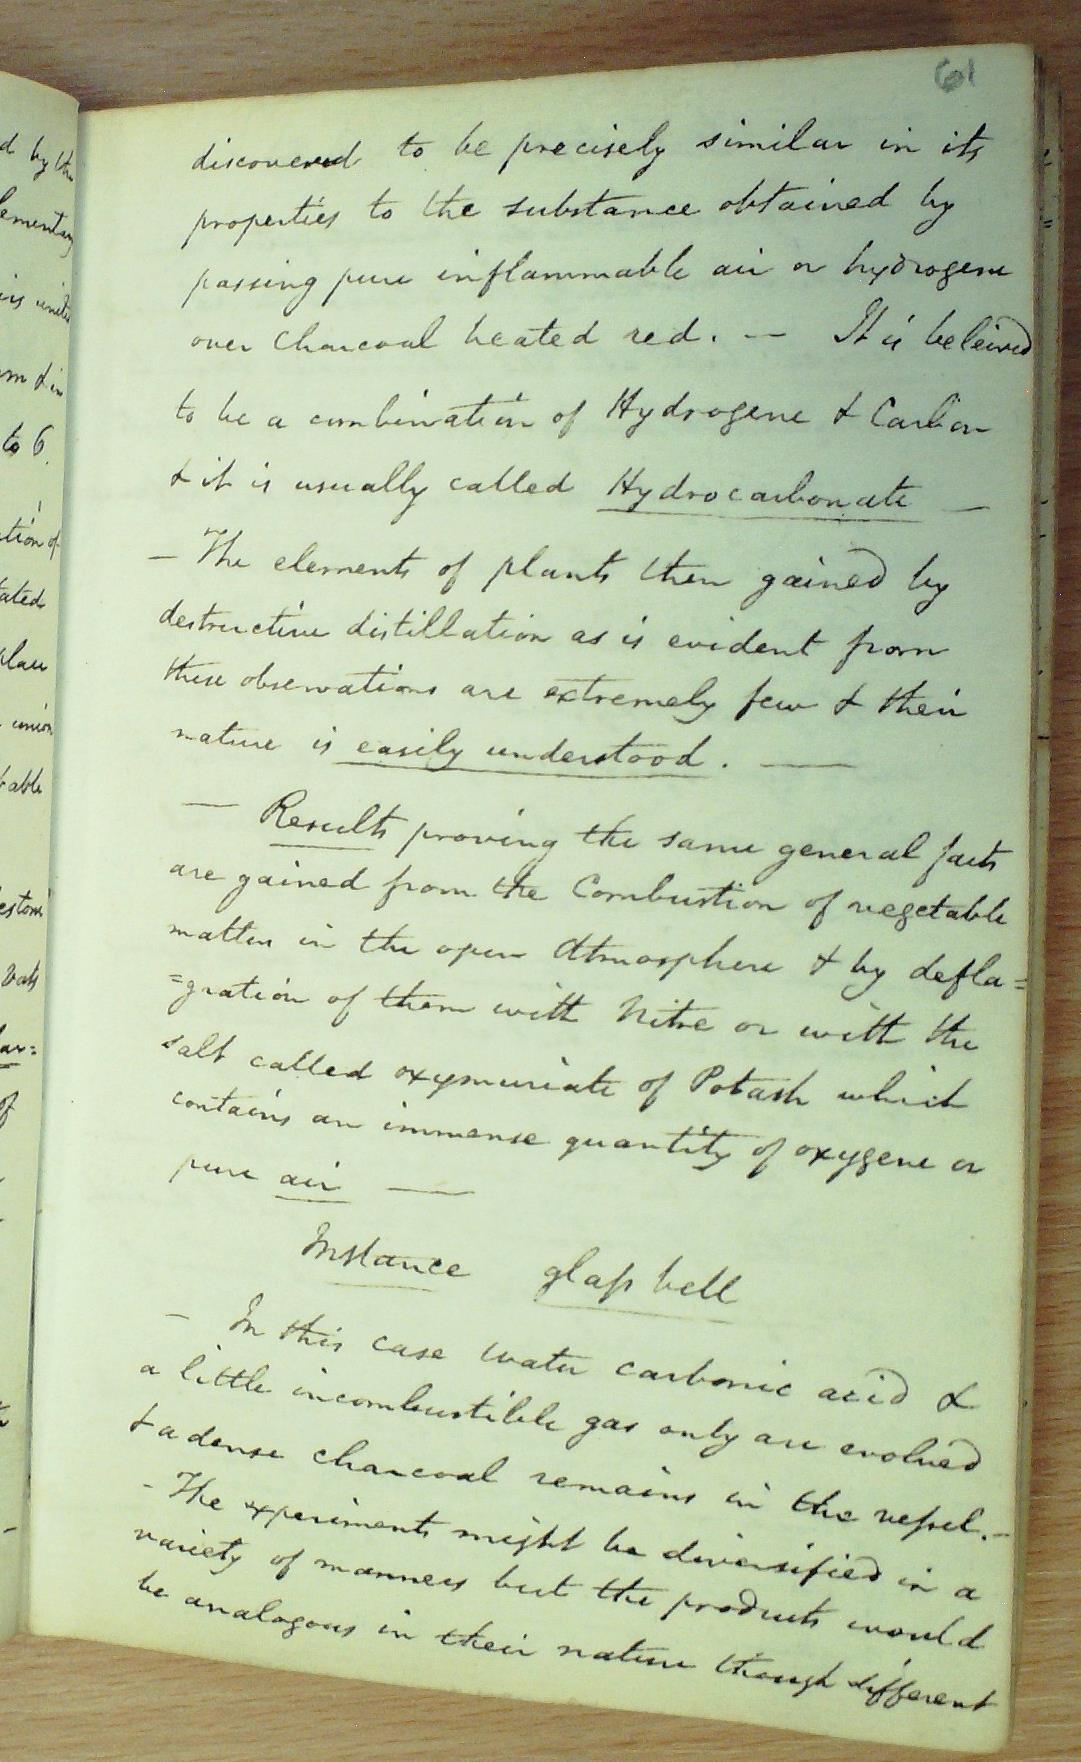 61
discovered to be precisely similar in its
properties to the substance obtained by
passing pure inflammable air or hydrogene
over Charcoal heated red. — It is beleived
to be a combination of Hydrogene & Carbon
& it is usually called Hydrocarbonate —
— The elements of plants then gained by
destructive distillation as is evident from
these observations are extremely few & their
nature is easily understood. —
— Results proving the same general facts
are gained from the Combustion of vegetable
matter in the open Atmosphere & by defla=
=gration of them with Nitre or with the
salt called oxymuriate of Potash which
contains an immense quantity of oxygene or
pure air —
Instance glaſs bell
— In this case water carbonic acid &
a little incombustible gas only are evolved
& a dense charcoal remains in the veſsel. —
- The experiments might be diversified in a
variety of manners but the products would
be analogous in their nature though different
d by the
lementary
is united
to 6.
ation of
tated
place
union
table
of